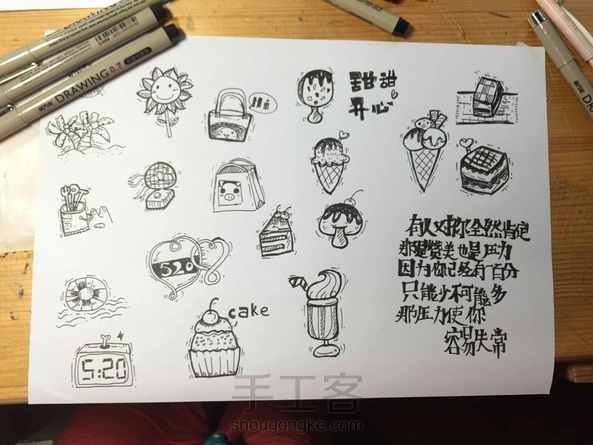 DRAWING 0.7
Hi
甜甜
开心
520
cake
5:20
有人对你全然肯定
那是赞美也是压力
因为你已经有百分
只能少不可能多
那压力使你
容易失常
手工客
shougongke.com